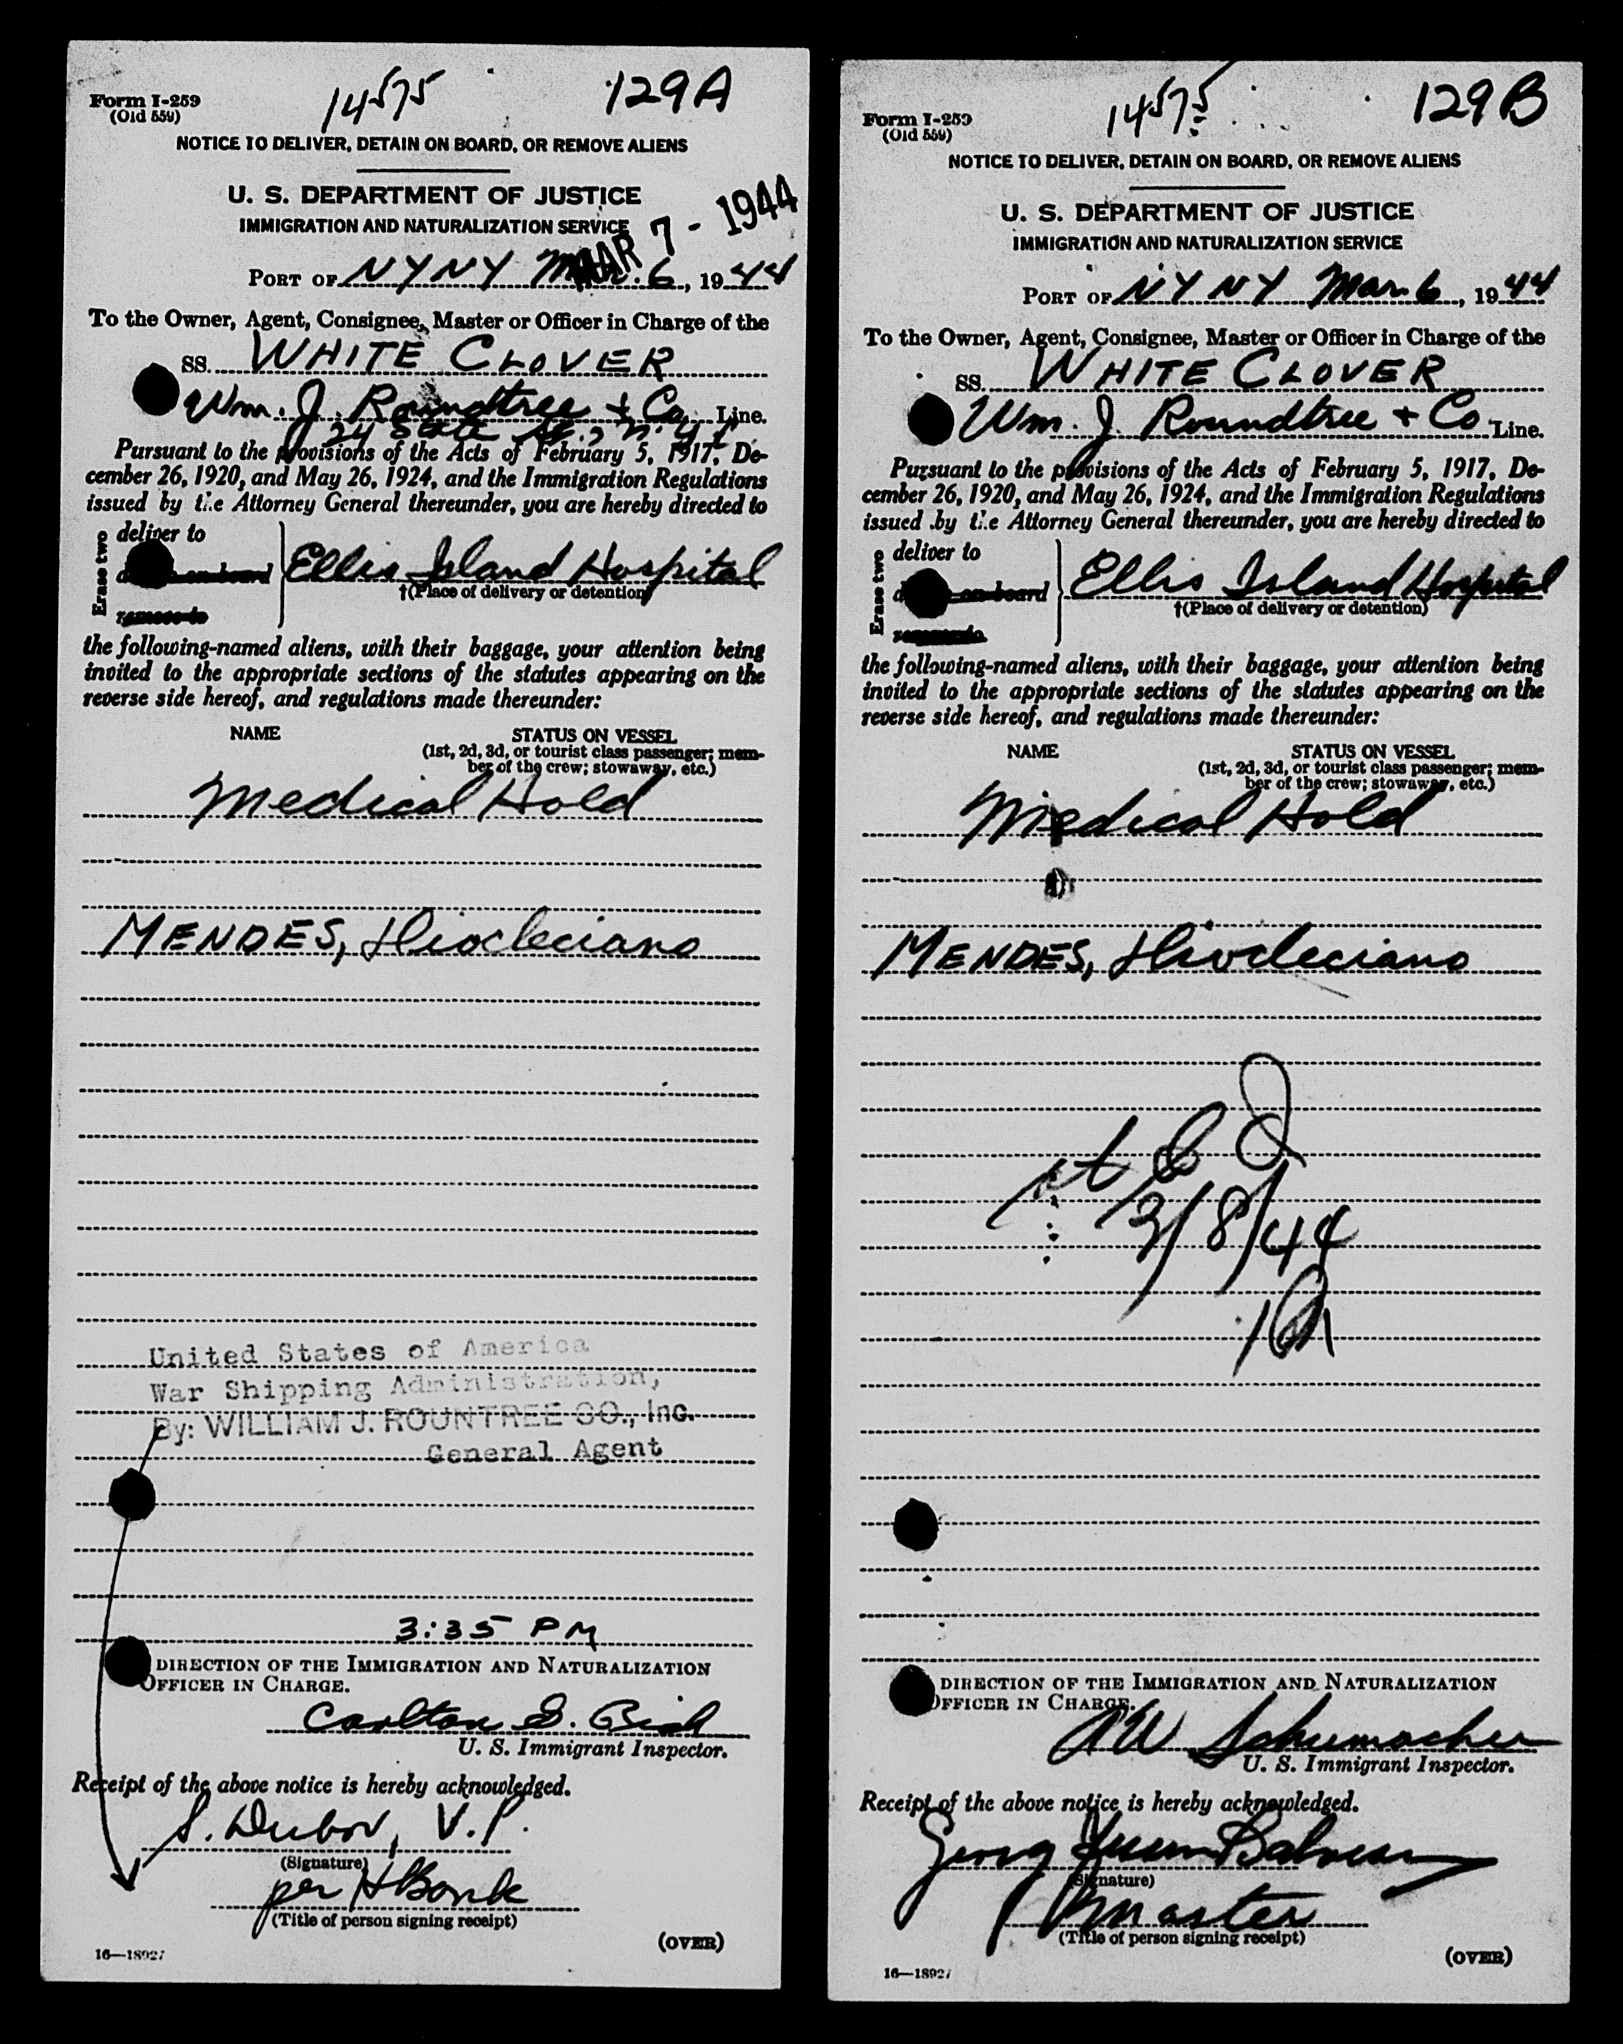 Form I-259
(Old 559)
14575
129A
NOTICE TO DELIVER, DETAIN ON BOARD, OR REMOVE ALIENS
U. S. DEPARTMENT OF JUSTICE
IMMIGRATION AND NATURALIZATION SERVICE
MAR 7 - 1944
PORT OF NY NY Mar. 6, 1944
To the Owner, Agent, Consignee, Master or Officer in Charge of the
SS. WHITE CLOVER
Wm. J. Roundtree & Co. Line.
24 State St., N.Y.C.
Pursuant to the provisions of the Acts of February 5, 1917, De-
cember 26, 1920, and May 26, 1924, and the Immigration Regulations
issued by the Attorney General thereunder, you are hereby directed to
Erase two
deliver to
on board
remove to
Ellis Island Hospital
†(Place of delivery or detention)
the following-named aliens, with their baggage, your attention being
invited to the appropriate sections of the statutes appearing on the
reverse side hereof, and regulations made thereunder:
NAME
STATUS ON VESSEL
(1st, 2d, 3d, or tourist class passenger; mem-
ber of the crew; stowaway, etc.)
Medical Hold
MENDES, Diocleciano
United States of America
War Shipping Administration,
By: WILLIAM J. ROUNTREE CO., Inc.
General Agent
3:35 PM
DIRECTION OF THE IMMIGRATION AND NATURALIZATION
OFFICER IN CHARGE.
Carlton S.
U. S. Immigrant Inspector.
Receipt of the above notice is hereby acknowledged.
S. Dubov, V.P.
(Signature)
per H Bonk
(Title of person signing receipt)
(OVER)
16—18927
Form I-259
(Old 559)
14575
129B
NOTICE TO DELIVER, DETAIN ON BOARD, OR REMOVE ALIENS
U. S. DEPARTMENT OF JUSTICE
IMMIGRATION AND NATURALIZATION SERVICE
PORT OF NY NY Mar. 6, 1944
To the Owner, Agent, Consignee, Master or Officer in Charge of the
SS. WHITE CLOVER
Wm. J. Roundtree & Co Line.
Pursuant to the provisions of the Acts of February 5, 1917, De-
cember 26, 1920, and May 26, 1924, and the Immigration Regulations
issued by the Attorney General thereunder, you are hereby directed to
Erase two
deliver to
on board
Ellis Island Hospital
†(Place of delivery or detention)
the following-named aliens, with their baggage, your attention being
invited to the appropriate sections of the statutes appearing on the
reverse side hereof, and regulations made thereunder:
NAME
STATUS ON VESSEL
(1st, 2d, 3d, or tourist class passenger; mem-
ber of the crew; stowaway, etc.)
Medical Hold
MENDES, Diocleciano
3/8/44
DIRECTION OF THE IMMIGRATION AND NATURALIZATION
OFFICER IN CHARGE.
Schumacher
U. S. Immigrant Inspector.
Receipt of the above notice is hereby acknowledged.
(Signature)
Master
(Title of person signing receipt)
(OVER)
16—18927